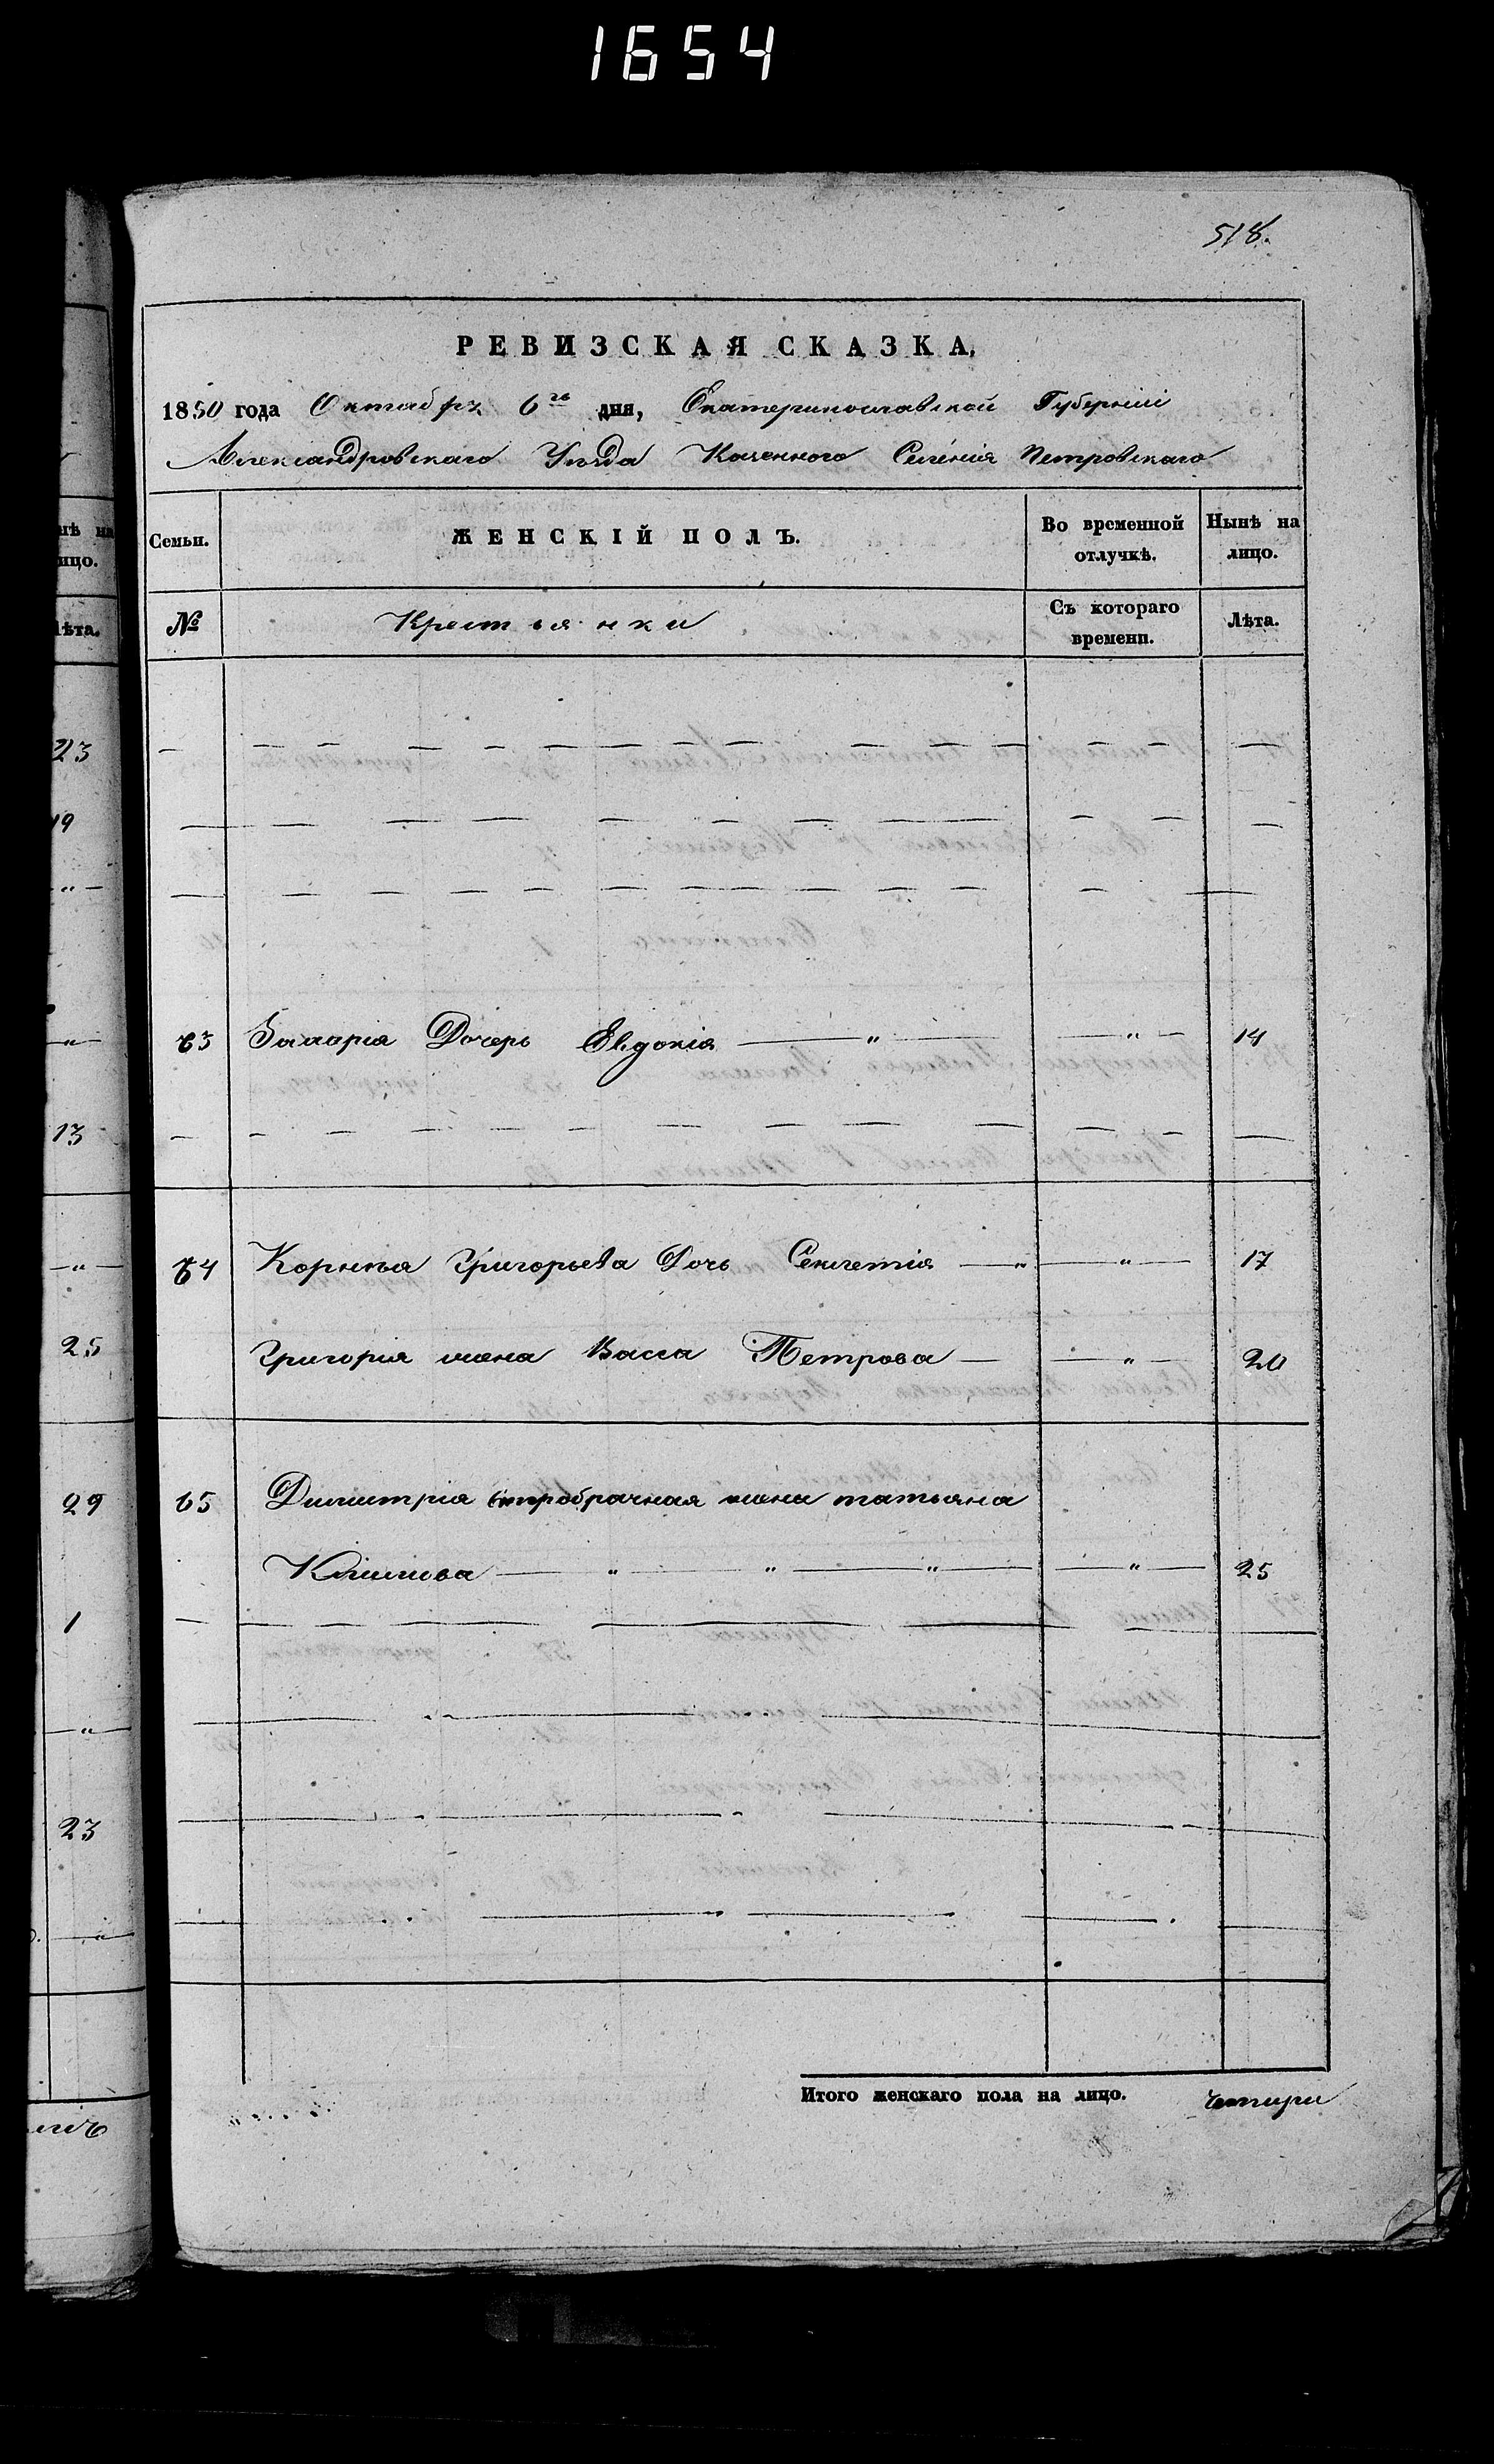 1654
518.
РЕВИЗСКАЯ СКАЗКА,
1850 года Октября 6го дня, Екатеринославской Губерніи
Александровскаго Уѣзда Казенного Селенія Петровскаго
нѣ на
лицо.
Лѣта.
Семьи.
ЖЕНСКІЙ ПОЛЪ.
Во временной отлучкѣ.
Нынѣ на лицо.
№
Крестьянки
Съ котораго времени.
Лѣта.
23
19
63 Захарія Дочерь Евдокія — " — — " — 14
13
64 Корнѣя Григорьева Дочь Секлетія — " — — " — 17
25
Григорія жена Васса Петрова — — " — 20
29
65 Димитрія второбрачная жена татьяна
Климова — " — " — " — — " — 25
1
23
Итого женскаго пола на лицо. четири